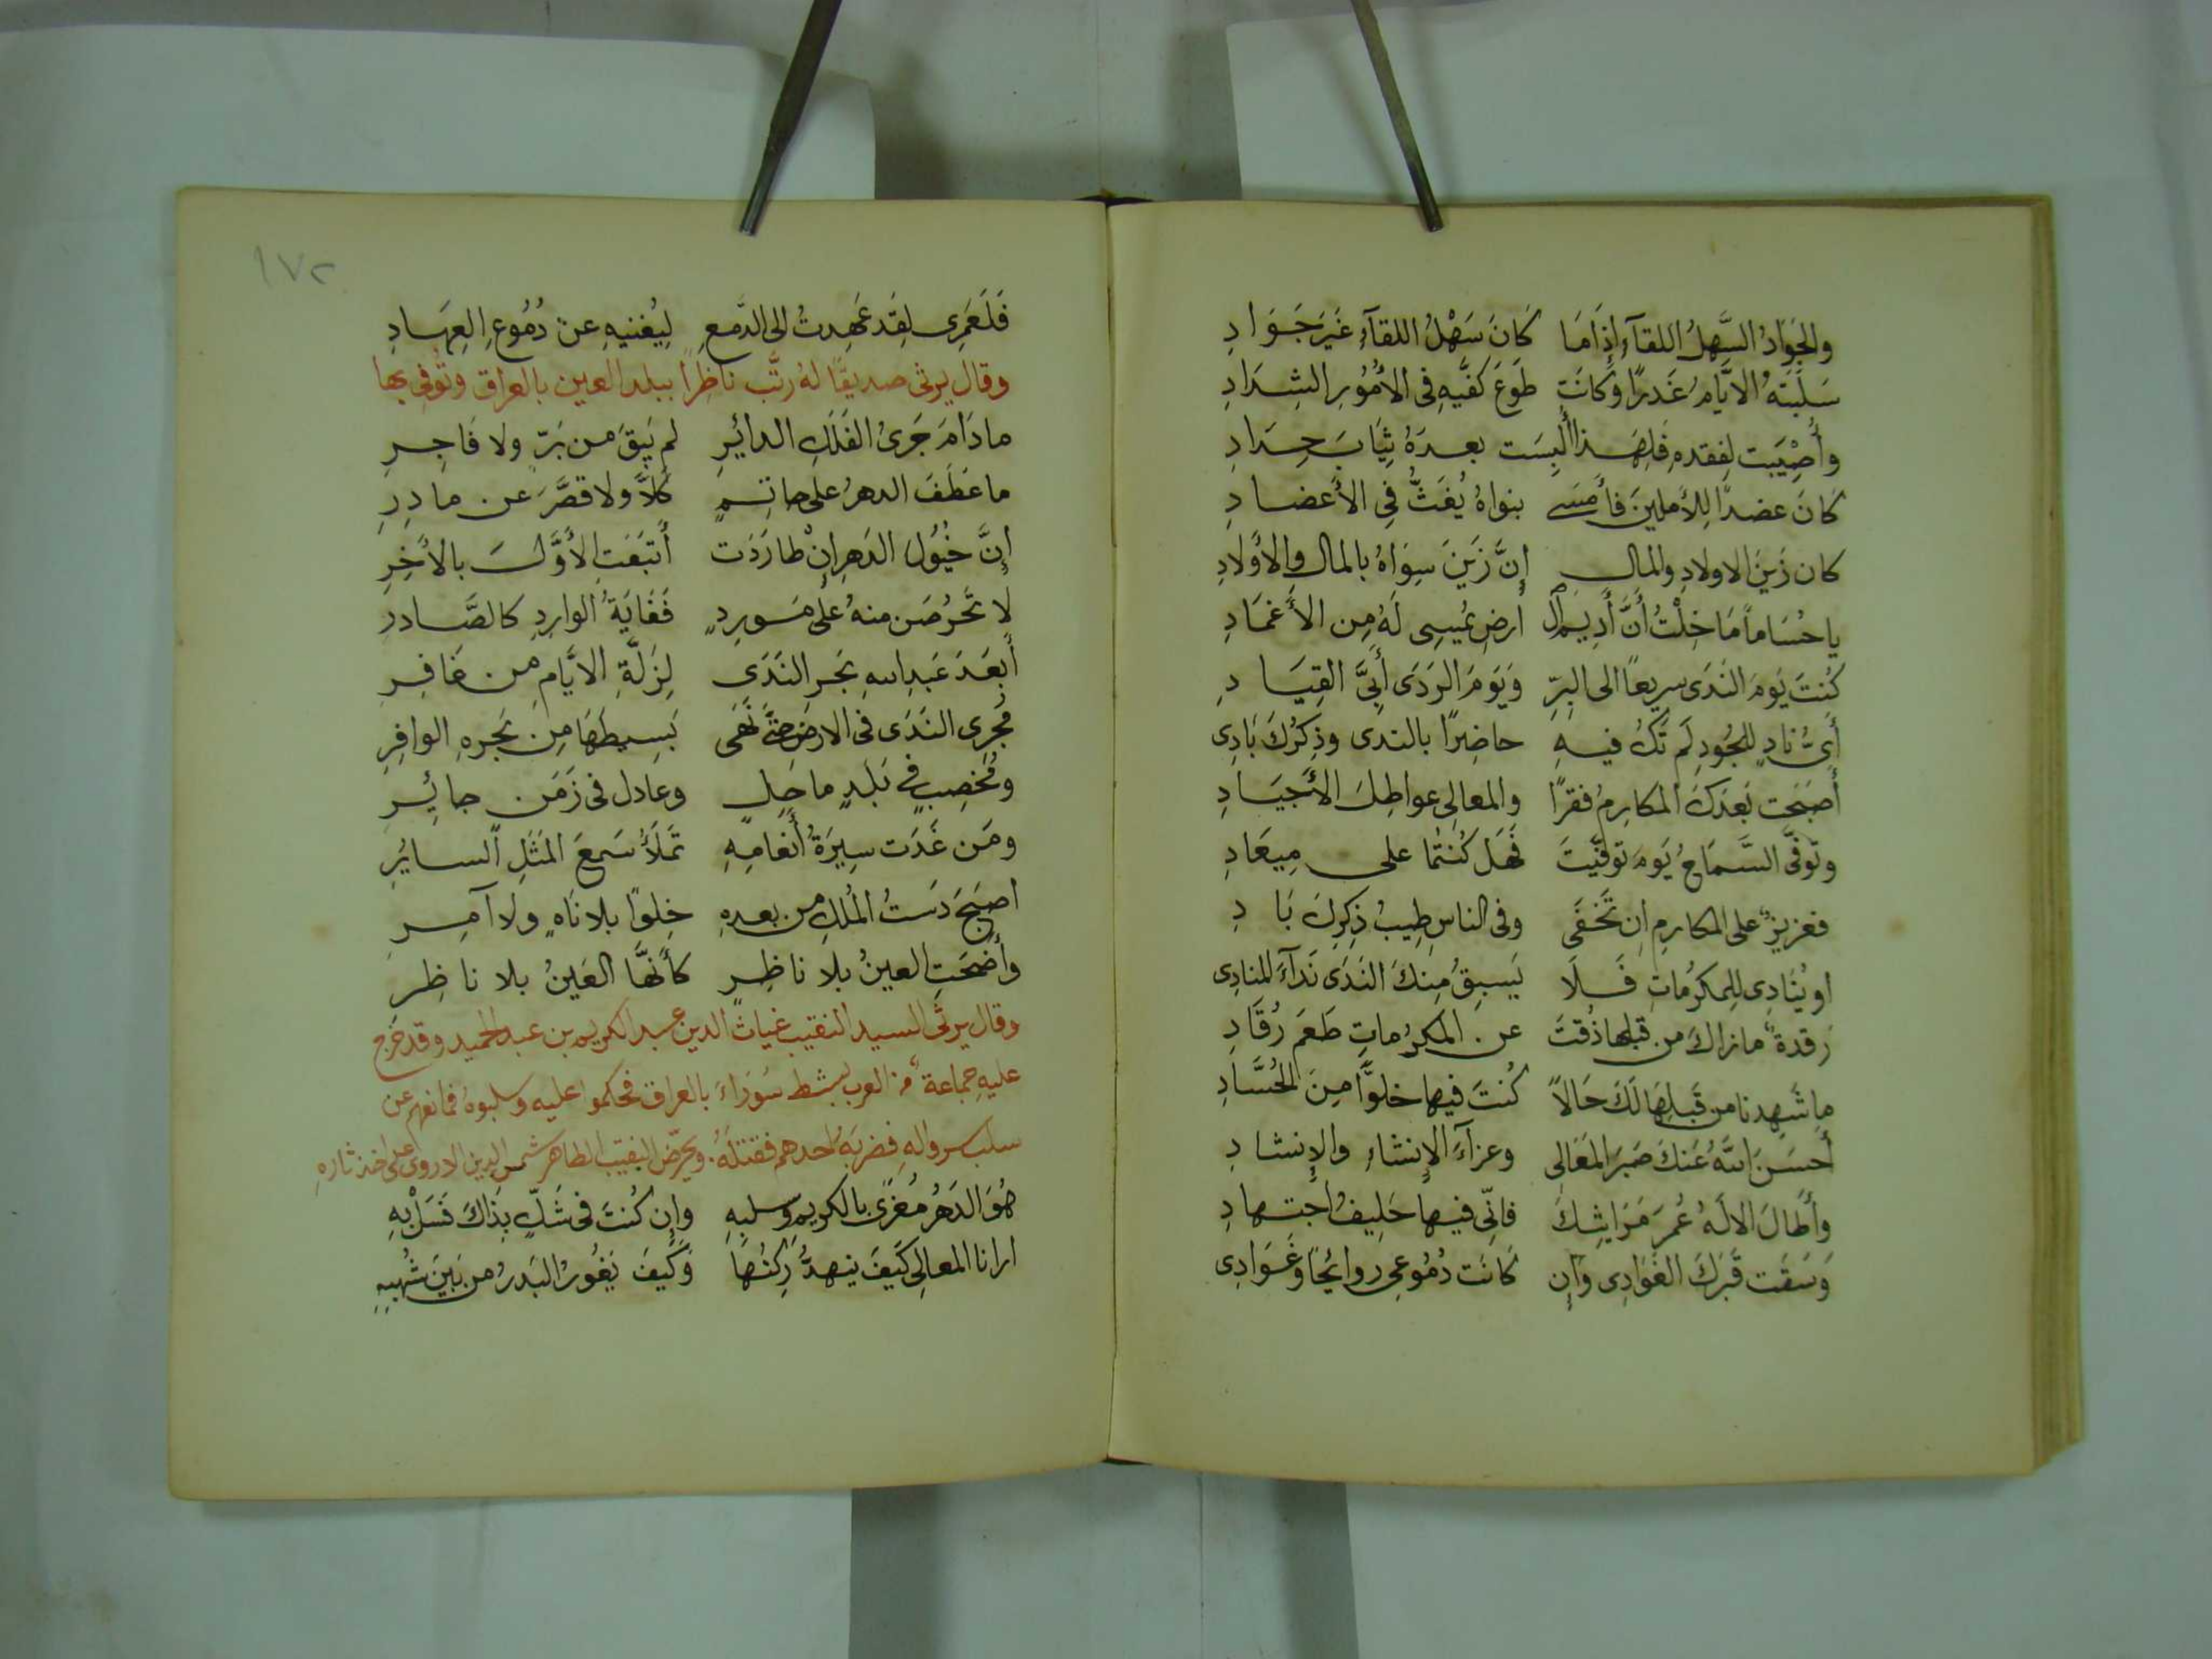 والجَوَادُ السَّهلُ اللقآءِ إِذَا مَا كَانَ سَهْلُ اللقآءِ غَيرَ جَوَادِ
سَلَبَتهُ الايَّامُ غَدرًا وَكَانَت طَوعَ كفَّيهِ فى الأُمُوُرِ الشِدَادِ
وأُصِيَبت لِفقدهِ فَلِهَذا أُلبِسَت بعدَهُ ثِيَابَ حِدَادِ
كَانَ عضداً لِلآملينَ فأَمسَى بنواهُ يُفَتُّ فِى الأَعضادِ
كان زَينَ الاولادِ والمَالِ إِنَّ زَينَ سِوَاهُ بالمالِ والأَولادِ
يا حُسَاماً مَا خِلْتُ أَنَّ أَدِيمَ ال أَرضِ يُمسِى لَهُ مِن الأَغمَادِ
كُنتَ يَومَ النَدَى سريعاً الى البِرِّ وَيَومَ الرَدَى أَبِىَّ القِيَادِ
أَىُّ نادٍ لِلجُودِ لَم تَكُ فيهِ حاضِرًا بالندى وذِكرُكَ بَادِى
أَصبَحَت بَعدَكَ المكارِمُ فقرًا والمعالِى عواطِلَ الأَجيَادِ
وتَوفَّى السَّمَاحُ يَومَ توفيَّتَ فَهَل كُنتُما على مِيعَادِ
فعزيزٌ على المكارِمِ اَن تَخفَى وفى الناسِ طِيبُ ذِكرِكَ بَادِ
او يُنَادِى لِلمكرُمَاتِ فَلَا يَسبِقُ مِنكَ النَدَى نَدآءَ المنادِى
رَقدةٌ ما زاك من قبلها ذُقتَ عن المكرُماتِ طَعمَ رُقَادِ
ما شَهِدنا من قَبلِهَا لَكَ حَالاً كُنتَ فيها خلوًّا مِنَ الحُسَّادِ
أَحسَنَ اللَّهُ عَنكَ صَبرَ المَعَالِى وعزآءَ الإِنشاءِ والإِنشادِ
وأَطَالَ الالَهُ عُمرَ مَرَاثِيكَ فانّى فيها حَلِيفُ اجتهادِ
وَسَقَت قَبرَكَ الغَوَادِى وَإِن كانَت دُمُوعِى روائحًا وَغَوَادِى
١٧٢
فَلَعَمرِى لقَد عَهِدتُ الى الدَّمعِ لِيُغنيهِ عن دُمُوعِ العِهَادِ
وقال يرثى صديقًا لهُ رتَّب ناظِراً ببلد العين بالعراق وتُوفى بها
ما دَامَ جَرىُ الفَلَكِ الدائِرِ لم يَبقَ من بَرٍّ ولا فَاجِرِ
ما عَطَفَ الدهرُ على حاتِمٍ كَلَّا ولا قصَّرَ عن مادِرِ
إِنَّ خُيُولَ الدَهرِ إِنْ طارَدَت أَتبَعَتِ الأَوَّلَ بالآخِرِ
لا تَحرُصَن منهُ على مَورِدٍ فَغَايَةُ الوارِدِ كالصَّادر
أَبعَدَ عَبدِ اللهِ بَحرِ النَدَى لِزَلَّةِ الايَّامِ من غَافِرِ
مُجرِى النَدَى فى الارضِ حتَّى نَمَى بَسِيطُهَا مِن بَحرهِ الوافِرِ
ومُخصِبٍ فى بَلَدٍ ماحِلٍ وعادل فى زَمَن جائِرِ
ومَن غَدَت سِيرَةُ أَنعَامِهِ تَملَأُ سَمعَ المَثَلِ السائِرِ
اصبَحَ دَستُ المُلكِ من بعدهِ خِلوًا بلا نَاهٍ ولا آمِرِ
وأَضحَتِ العينُ بلا ناظِرٍ كأَنَّهَا العَينُ بلا ناظِر
وقال يرثى السيد النقيب غياث الدين عبد الكريم بن عبد الحميد وقد خرج
عليهِ جماعةٌ من العرب بشط سَوَراءَ بالعراق فحكموا عليه وسلبوهُ فمانعهم عن
سلب سروالهِ فضربَهُ احدهم فقتلهُ. ويحرّض النقيب الطاهر شمس الدين الاروى على اخذ ثارهِ
هُوَ الدَهرُ مُغرًى بالكريم وسلبهِ وإِن كُنتَ فى شَكٍّ بِذَاكَ فَسَلْ بِهِ
ارانا المعالِى كَيفَ ينهدُّ رُكنُهَا وَكَيفَ يَغُورُ البَدرُ من بَينَ شُهبِهِ